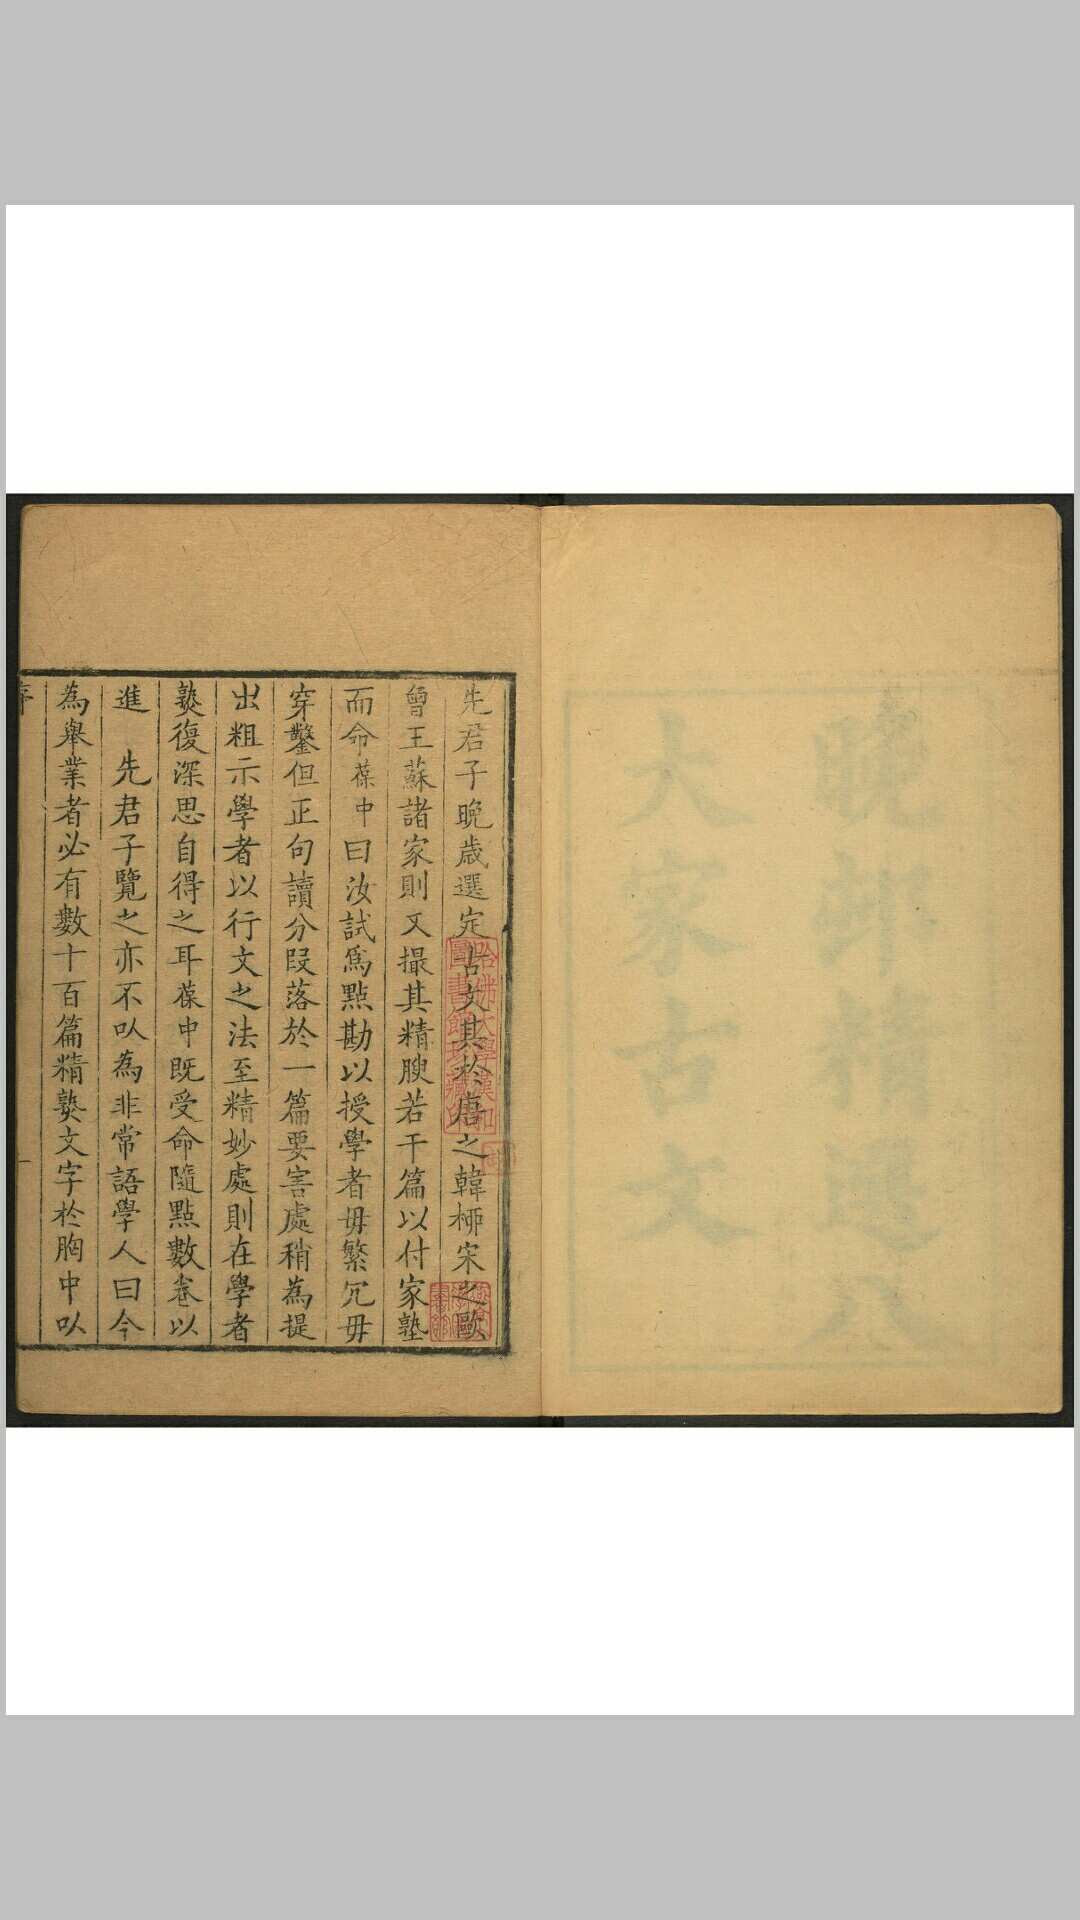 先君子晩歳選定古文其於唐之韓栁宋之歐
曾王蘇諸家則又撮其精腴若干篇以付家塾
而命葆中曰汝試爲點勘以授學者毋繁冗毋
穿鑿但正句讀分段落於一篇要害處稍為提
出粗示學者以行文之法至精妙處則在學者
熟復深思自得之耳葆中既受命隨點數卷以
進　先君子覽之亦不㕥為非常語學人曰今
為舉業者必有數十百篇精熟文字於胸中㕥
序
一
哈佛大學漢和
圖書館珍藏印
大家古文